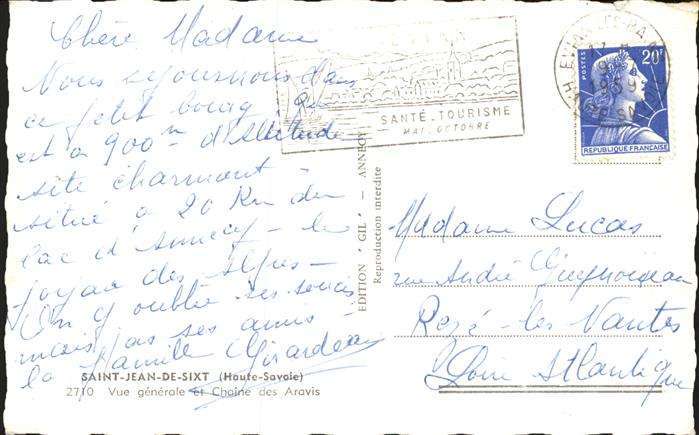 Chère Madame
Nous séjournons dans
ce petit bourg qui
est a 900m d'altitude
site charmant -
situé a 20 Km du
lac d'Annecy - le
joyau des Alpes -
On y oublie ses soucis
mais pas ses amis -
la famille Girardeau
SAINT-JEAN-DE-SIXT (Haute-Savoie)
2710 Vue générale et Chaîne des Aravis
EDITION "GIL" - ANNECY
Reproduction interdite
SANTÉ - TOURISME
MAI - OCTOBRE
POSTES
20F
REPUBLIQUE FRANÇAISE
Madame Lucas
rue André
Rezé-les Nantes
Loire Atlantique